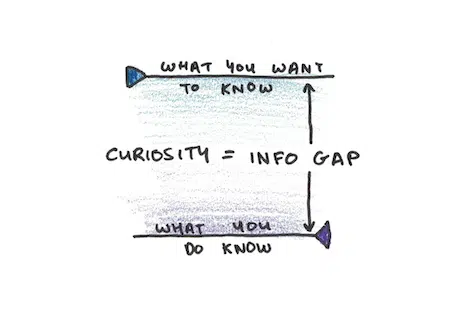 WHAT YOU WANT
TO KNOW
CURIOSITY = INFO GAP
WHAT YOU
DO KNOW